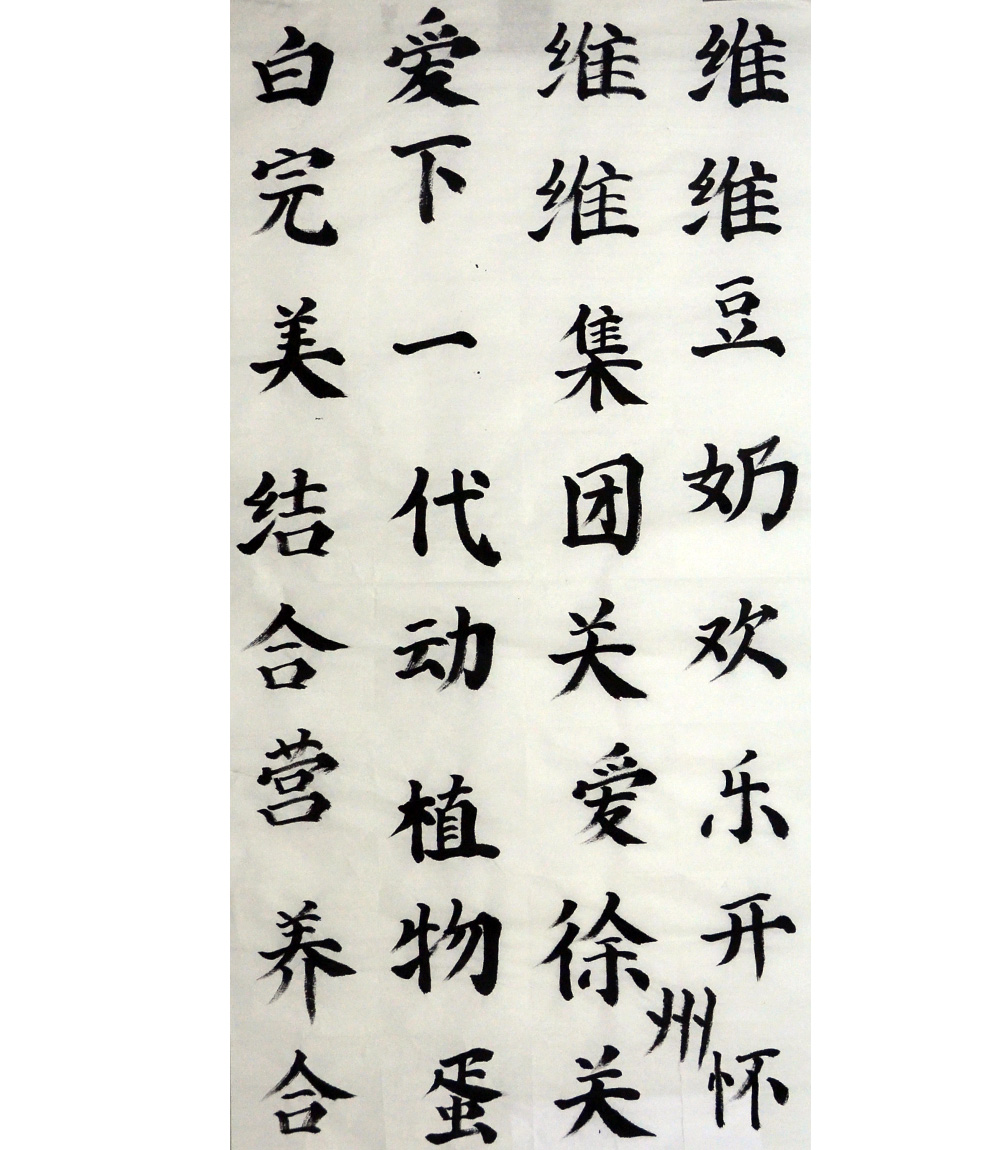 维维豆奶欢乐开怀
维维集团关爱徐州关
爱下一代动植物蛋
白完美结合营养合